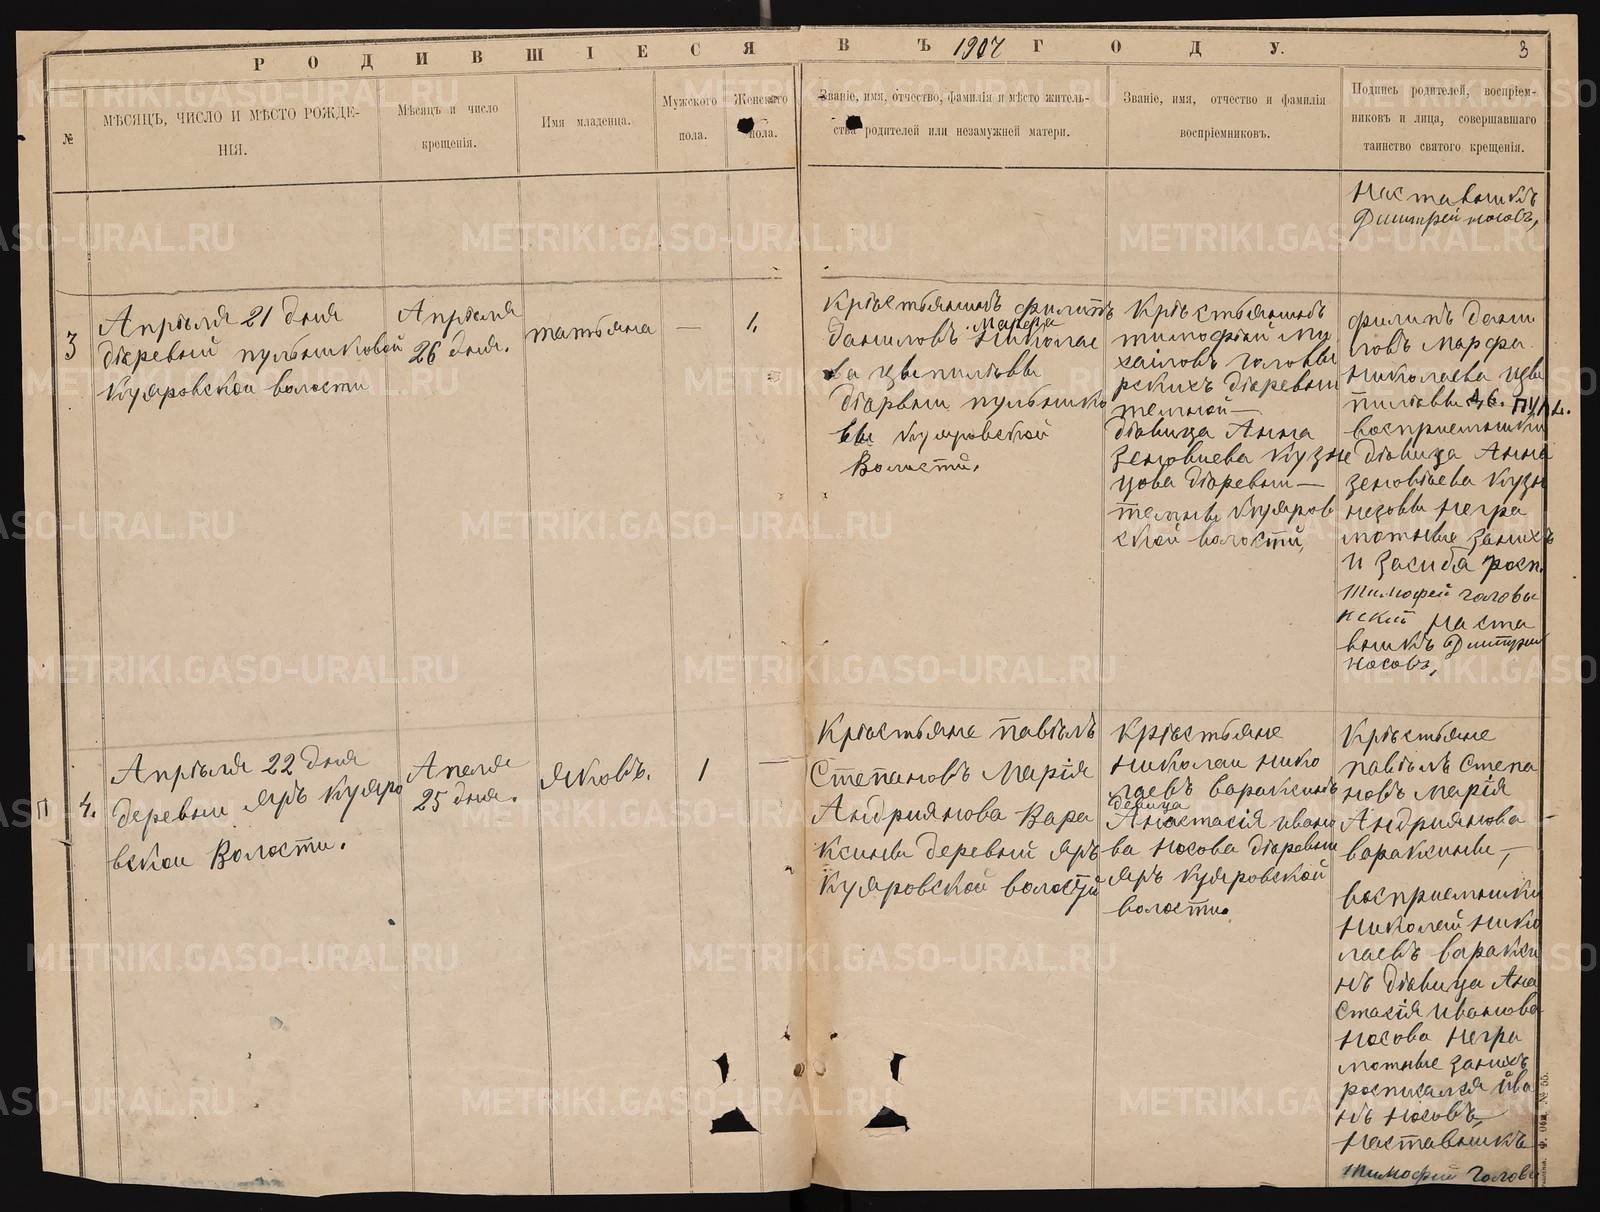 РОДИВШІЕСЯ ВЪ 1907 ГОДУ.
3
№
МѢСЯЦЪ, ЧИСЛО И МѢСТО РОЖДЕ-
НІЯ.
Мѣсяцъ и число
крещенія.
Имя младенца.
Мужского
пола.
Женскаго
пола.
Званіе, имя, отчество, фамилія и мѣсто житель-
ства родителей или незамужней матери.
Званіе, имя, отчество и фамилія
воспріемниковъ.
Подпись родителей, воспріем-
никовъ и лица, совершавшаго
таинство святого крещенія.
Наставникъ
Димитрей носовъ,
3
Апрѣля 21 дня
дѣревьни пульниковой
Куяровской волости
Апрѣля
26 дня.
татьяна
—
1.
Крѣстьянинъ филипъ
Даниловъ Марфа Николае
ва
дѣрвьни пульнико
вы Куяровской
Волости.
Крѣстьянинъ
тимофѣй Ми
хаіловъ Головы
рскихъ дѣревьни
темной—
дѣвица Анна
Зеновиева Кузне
цова дѣревьни—
темны Куяров
ской волости,
филипъ Дани
ловъ Марфа
Николаева
восприемники
дѣвица Анна
Зеновѣева Кузн
нецовы Негра
мотные Занихъ
И Засибя росп.
Тимофей Головы
рский Наста
вникъ Дмитрий
Носовъ,
П 4.
Апрѣля 22 дня
деревьни Яръ Куяро
вскои Волости.
Апеля
25 дня.
Яковъ.
1
—
Крѣстьяне павѣлъ
Степановъ Марія
Андриянова Вара
ксины деревьни Яръ
Куяровской волости
Крѣстьяне
Николаи Нико
лаевъ вараксинъ
девица
Анастасія Ивано
ва Носова дѣревьни
Яръ Куяровской
волости.
Крѣстьяне
павѣлъ Степа
новъ Марія
Андриянова
вараксины,—
восприемники
Николай Нико
лаевъ вараксі
нъ дѣвица Ана
стасія Иванова
Носова Негра
мотные Занихъ
росписался Ива
нъ Носовъ,
Наставникъ
Тимофий Голови
METRIKI.GASO-URAL.RU